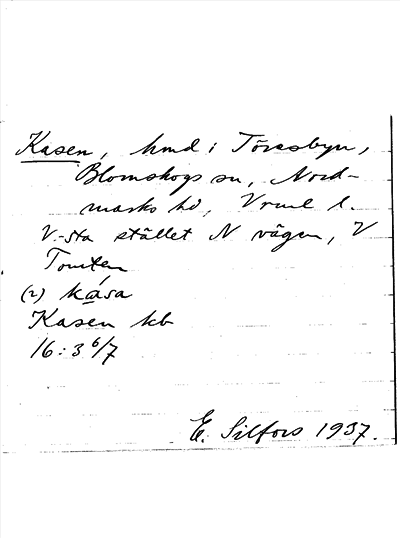 Kasen, hmd i Töresbyn,
Blomskogs sn, Nord-
marks hd, Vrml l.
V.-sta stället N vägen, V
Tomten
(2) kása
Kasen kb
16:3 6/7
E. Silfors 1937.